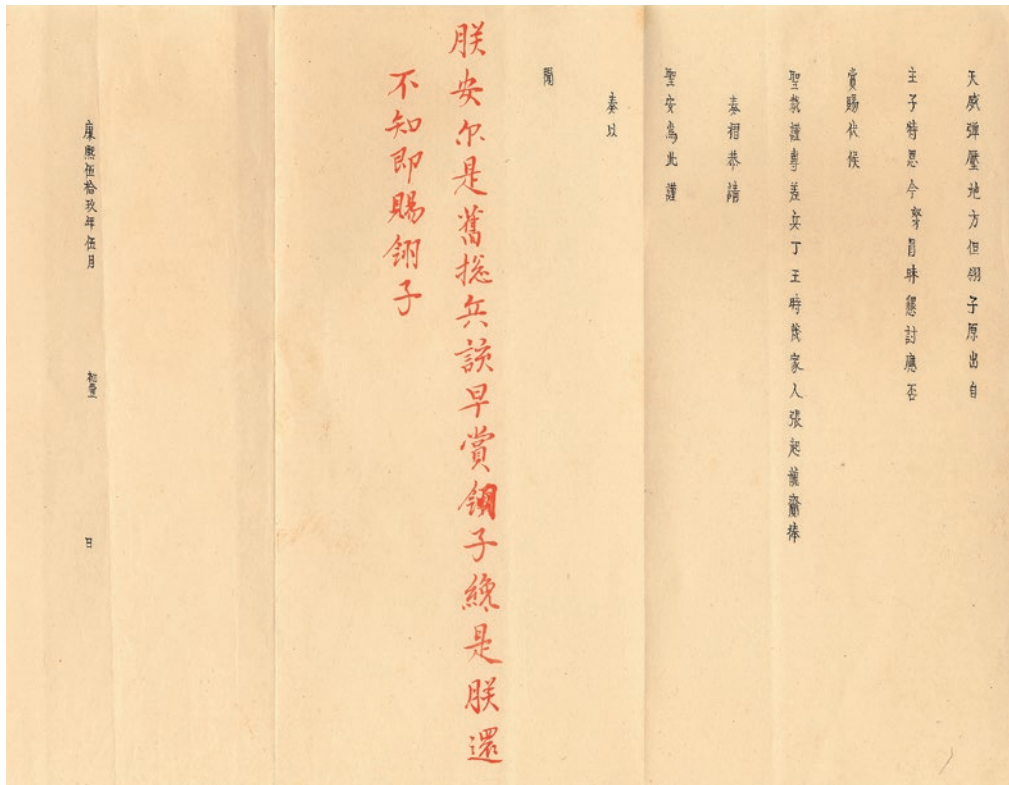 天威彈壓地方但翎子原出自
主子特恩今弩冒昧懇討應否
賞賜伏候
聖裁謹專差兵丁王時茂家人張起龍齎捧
奏摺恭請
聖安為此謹
奏以
聞
朕安尔是舊捴兵該早賞翎子纔是朕還
不知即賜翎子
康熙伍拾玖年伍月 初壹 日